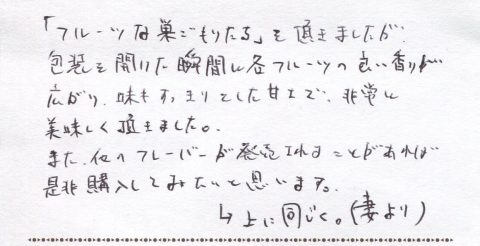 「フルーツな巣ごもりたる」を頂きましたが、
包装を開けた瞬間に各フルーツの良い香りが
広がり、味もすっきりとした甘工で、非常に
美味しく頂きました。
また、他のフレーバーが発売されることがあれば
是非購入してみたいと思います。
↳上に同じく。(妻より)